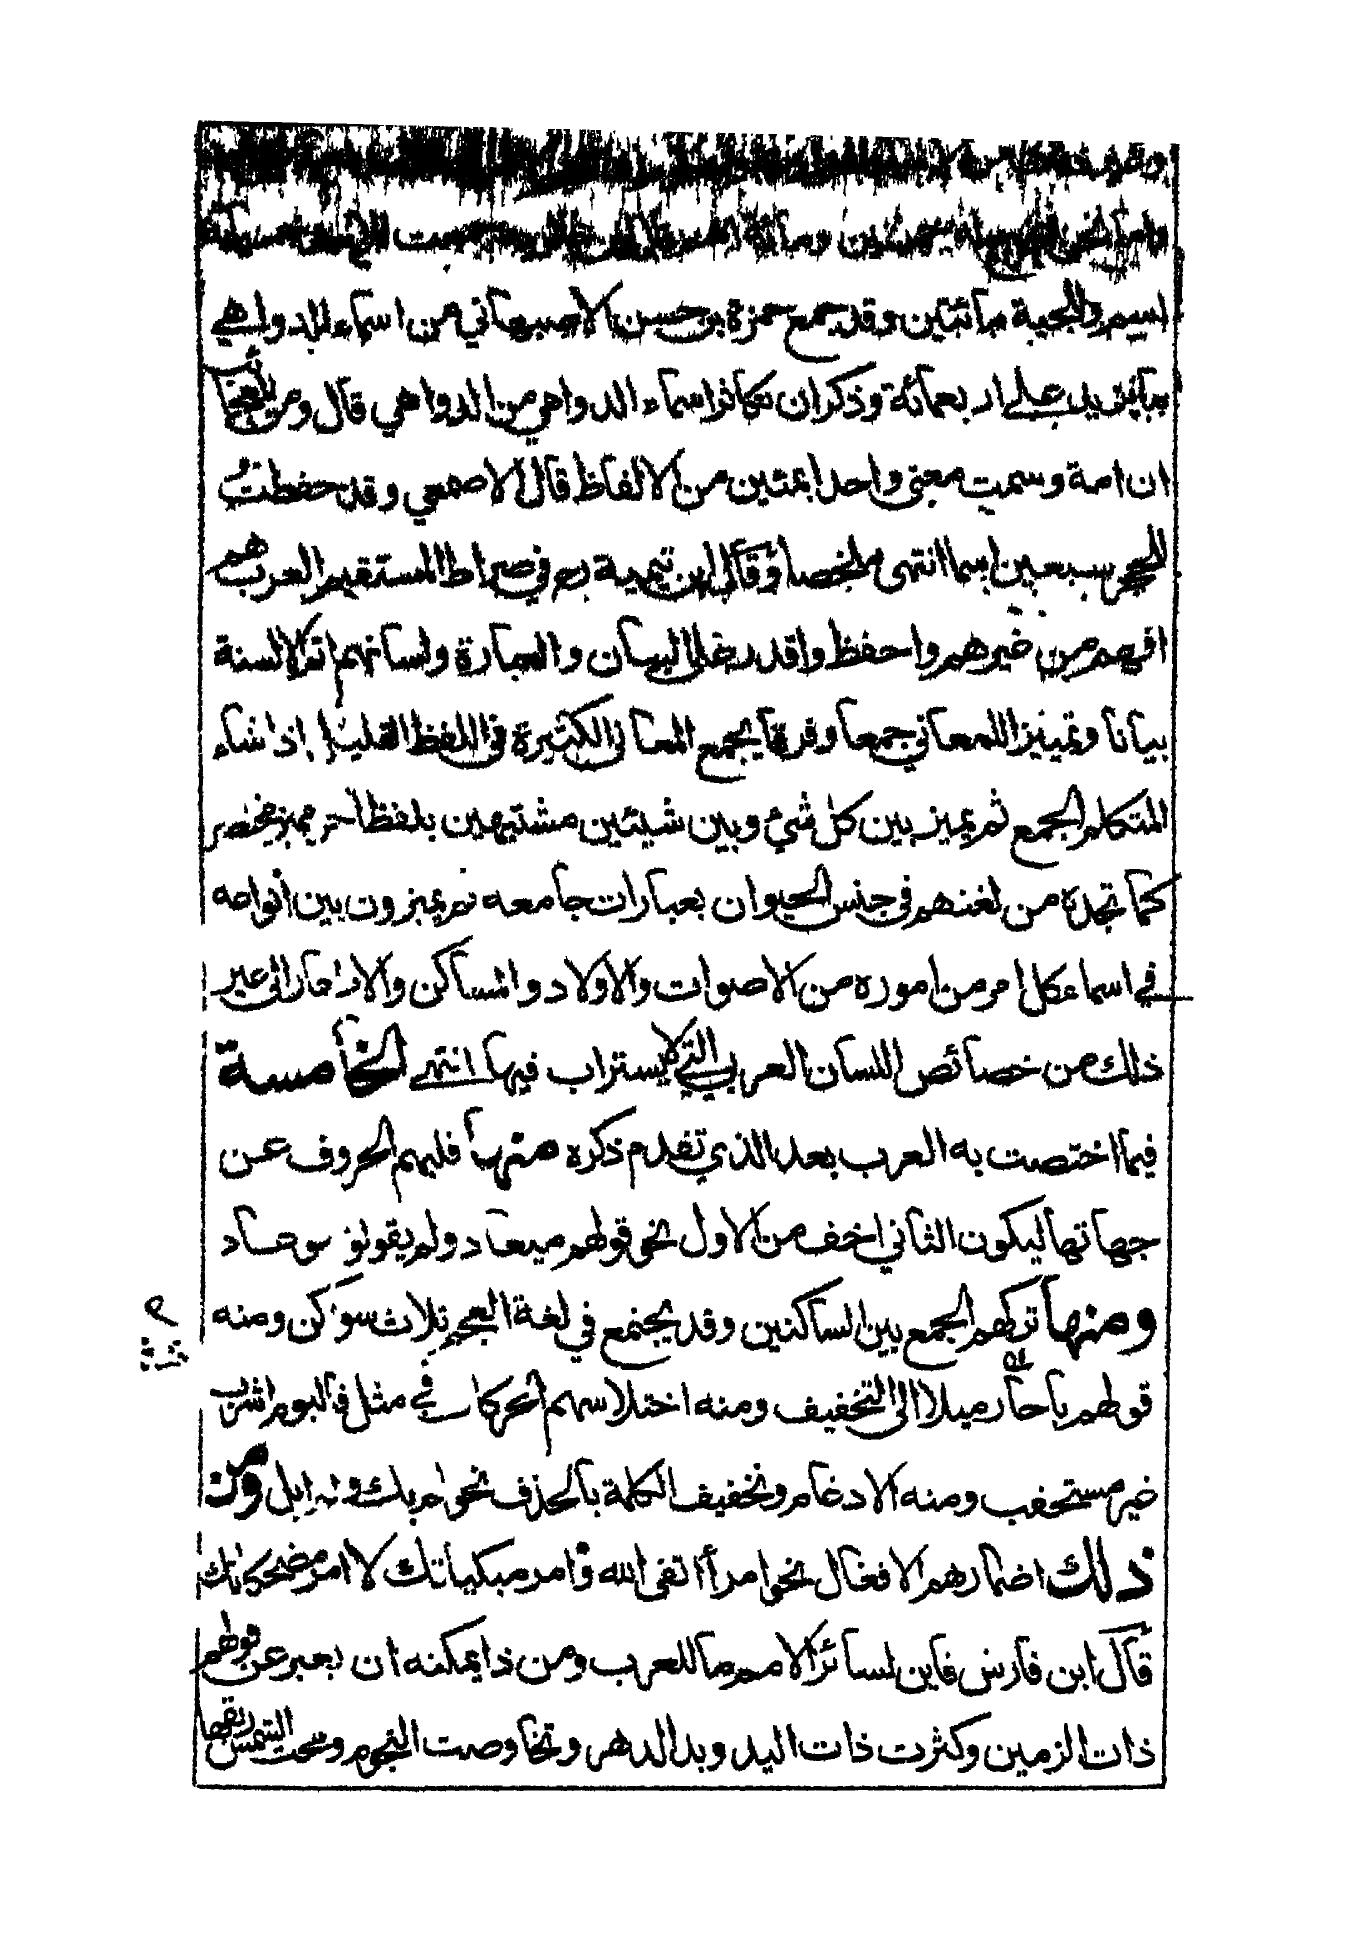 اسم وللحية مائتين وقد جمع حمزة بن حسن الاصبهاني من اسماء الدواهي
ما يزيد على اربعمائة وذكر ان تكاثر اسماء الدواهي من الدواهي قال ومن العجائب
ان امة وسمت معنى واحدا بمئين من الالفاظ قال الاصمعي وقد حفظت
للحجر سبعين اسما انتهى ملخصا وقال ابن تيمية رح في صراط المستقيم العرب هم
افهم من غيرهم واحفظ واقدر على البيان والعبارة ولسانهم اتم الالسنة
بيانا وتمييزا للمعاني جمعا وفرقا يجمع المعاني الكثيرة في اللفظ القليل اذا شاء
المتكلم الجمع ثم يميز بين كل شيء وبين شيئين مشتبهين بلفظ آخر مميز مختصر
كما تجده من لغتهم في جنس الحيوان بعبارات جامعه ثم يميزون بين انواعه
في اسماء كل امر من اموره من الاصوات والاولاد والمساكن والاظفار الى غير
ذلك من خصائص اللسان العربي التي لا يستراب فيها انتهى الخامسة
فيما اختصت به العرب بعد الذي تقدم ذكره منها قلبهم الحروف عن
جهاتها ليكون الثاني اخف من الاول نحو قولهم ميعاد ولم يقولوا موعاد
ومنها تركهم الجمع بين الساكنين وقد يجتمع في لغة العجم ثلاث سواكن ومنه
قولهم يا حار ميلا الى التخفيف ومنه اختلاسهم الحركات في مثل فاليوم اشرب
غير مستحقب ومنه الادغام وتخفيف الكلمة بالحذف نحو لم يك ولم ابل ومن
ذلك اضمارهم الافعال نحو امرأ اتقى الله وامر مبكياتك لا امر مضحكاتك
قال ابن فارس فاين لسائر الامم ما للعرب ومن ذا يمكنه ان يعبر عن قولهم
ذات الزمين وكثرت ذات اليد ويد الدهر وتخاوصت النجوم ومجت الشمس ريقها